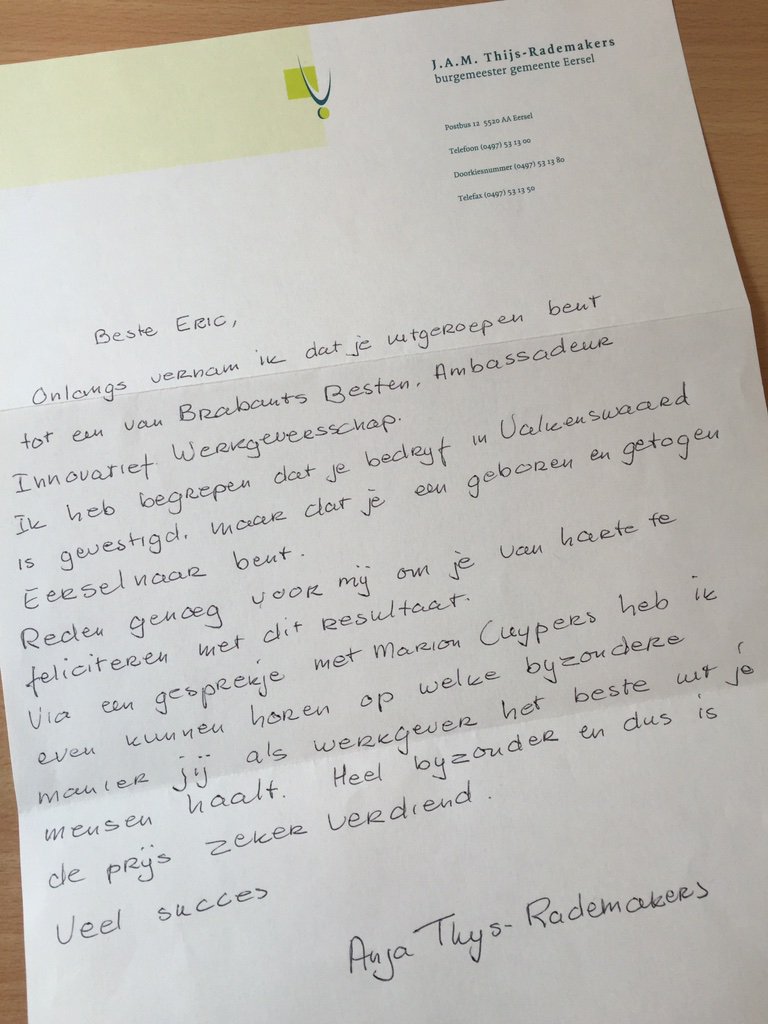 J.A.M. Thijs-Rademakers
burgemeester gemeente Eersel
Postbus 12 5520 AA Eersel
Telefoon (0497) 53 13 00
Doorkiesnummer (0497) 53 13 80
Telefax (0497) 53 13 50
Beste Eric,
Onlangs vernam ik dat je uitgeroepen bent
tot een van Brabants Besten. Ambassadeur
Innovatief Werkgeversschap.
Ik heb begrepen dat je bedrijf in Valkenswaard
is gevestigd. maar dat je een geboren en getogen
Eerselnaar bent.
Reden genoeg voor mij om je van harte te
feliciteren met dit resultaat.
Via een gesprekje met Marion Cuypers heb ik
even kunnen horen op welke byzondere
manier jij als werkgever het beste uit je
mensen haalt. Heel byzonder en dus is
de prijs zeker verdiend.
Veel succes
Anja Thys-Rademakers